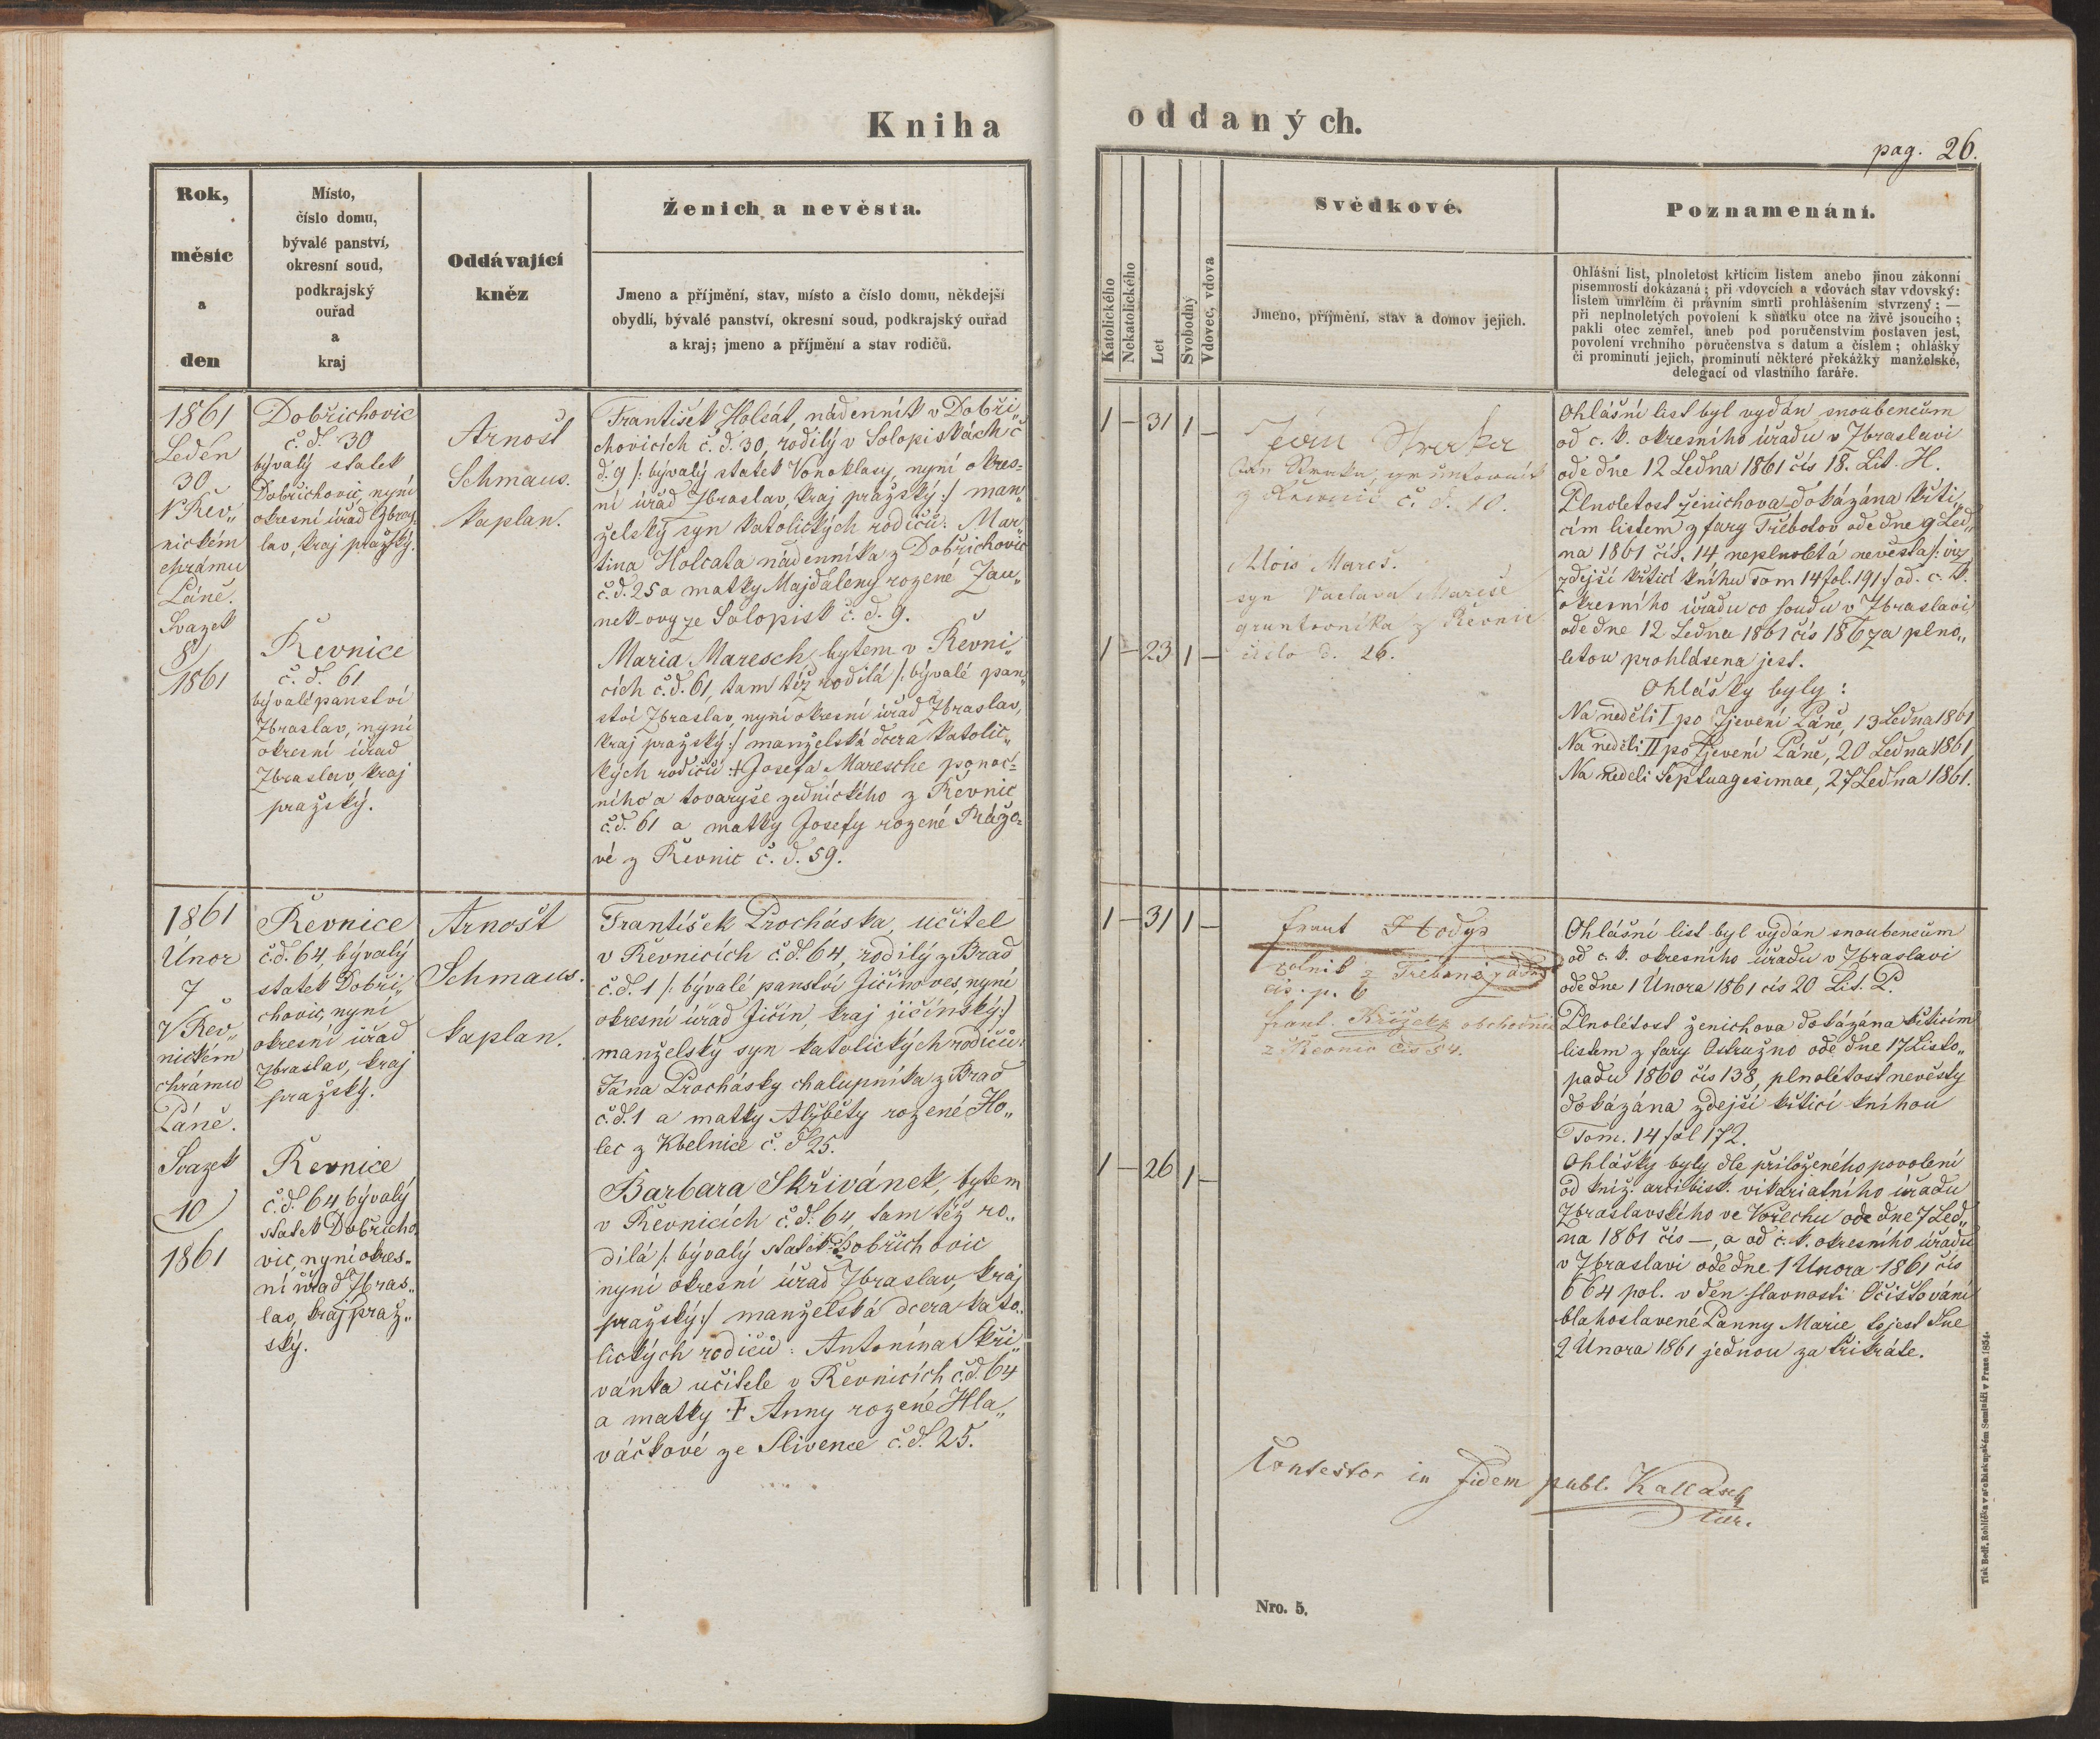 Kniha
oddaných.
pag. 26.
Rok,
měsíc
a
den
Místo,
číslo domu,
bývalé panství,
okresní soud,
podkrajský
ouřad
a
kraj
Oddávající
kněz
Ženich a nevěsta.
Jmeno a příjmění, stav, místo a číslo domu, někdejší
obydlí, bývalé panství, okresní soud, podkrajský ouřad
a kraj; jmeno a příjmění a stav rodičů.
Katolického
Nekatolického
Let
Svobodný
Vdovec, vdova
Svědkové.
Jmeno, příjmění, stav a domov jejich.
Poznamenání.
Ohlášní list, plnoletost křticím listem anebo jinou zákonní
písemností dokázaná; při vdovcích a vdovách stav vdovský:
listem umrlčím či právním smrti prohlášením stvrzený; —
při neplnoletých povolení k sňatku otce na živě jsoucího;
pakli otec zemřel, aneb pod poručenstvím postaven jest,
povolení vrchního poručenstva s datum a číslem; ohlášky
či prominutí jejich, prominutí některé překážky manželské,
delegací od vlastního faráře.
1861
Leden
30
V Řev„
nickém
chrámu
Páně.
Svazek
8
1861
Dobřichovic
č. d. 30
bývalý statek
Dobřichovic, nyní
okresní úřad Zbras„
lav, kraj pražský.
Řevnice
č. d. 61
bývalé panství
Zbraslav, nyní
okresní úřad
Zbraslav, kraj
pražský.
Arnošt
Schmaus.
kaplan.
František Holcát, nádenník v Dobři„
chovicích č. d. 30, rodilý v Solopiskách č
d. 9 /: bývalý statek Vonoklasy, nyní okres=
ní úřad Zbraslav, kraj pražský :/ man„
želský syn katolických rodičů: Mar
tina Holcata nádenníka z Dobřichovic
č. d. 25 a matky Majdaleny rozené Zau„
nek-ovy ze Solopisk č. d. 9.
Maria Maresch, bytem v Řevni„
cích č. d. 61, tam též rodilá /: bývalé pan„
ství Zbraslav, nyní okresní úřad Zbraslav,
kraj pražský :/ manželská dcera katolic„
kých rodičů: + Josefa Maresche ponoc=
ního a tovaryše zednického z Řevnic
č. d. 61 a matky Josefy rozené Rážo=
vé z Řevnic č. d. 59.
1 — 31 1 —
1 — 23 1 —
Jan Straka
Jan Straka, gruntovník
z Řevnic č. d. 10.
Alois Mareš.
syn Vaclava Mareše
gruntovníka z Řevnic
číslo d. 26.
Ohlášní list byl vydán snoubencům
od c. k. okresního úřadu v Zbraslavi
ode dne 12 Ledna 1861 čís 18. Lit. H.
Plnoletost ženichova dokázána křti„
cím listem z fary Třebotov ode dne 9 Led„
na 1861 čís. 14 neplnoletá nevěsta /: viz
zdejší křticí knihu Tom 14 fol. 191 :/ od c. k.
okresního úřadu co soudu v Zbraslavi
ode dne 12 Ledna 1861 čís 186 za plno„
letou prohlášena jest.
Ohlášky byly:
Na neděli I po Zjevení Páně, 13 Ledna 1861
Na neděli II po Zjevení Páně, 20 Ledna 1861,
Na neděli Septuagesimae, 27 Ledna 1861.
1861
Únor
7
V Řev„
nickém
chrámu
Páně.
Svazek
10
1861
Řevnice
č. d. 64, bývalý
statek Dobři„
chovic, nyní
okresní úřad
Zbraslav, kraj
pražský.
Řevnice
č. d. 64 bývalý
statek Dobřicho„
vic, nyní okres„
ní úřad Zbras„
lav, kraj praž„
ský.
Arnošt
Schmaus.
kaplan.
František Procháska, učitel
v Řevnicích č. d. 64, rodilý z Brad
č. d. 1 /: bývalé panství Jičínoves, nyní
okresní úřad Jičín, kraj jičínský :/
manželský syn katolických rodičů:
Jána Prochásky chalupníka z Brad
č. d. 1 a matky Alžběty rozené Ho„
lec z Kbelnice č. d 25.
Barbara Skřivánek, bytem
v Řevnicích č. d. 64, tam též ro„
dilá /: bývalý statek Dobřichovic
nyní okresní úřad Zbraslav, kraj
pražský :/ manželská dcera kato„
lických rodičů: Antonína Skři„
vánka učitele v Řevnicích č. d. 64
a matky + Anny rozené Hla„
váčkové ze Slivence č. d. 25.
1 — 31 1 —
1 — 26 1 —
frant Hodys
rolník z Třebaně
čís. p. 6
frant. Křížek obchodník
z Řevnic čís 54.
Ohlášní list byl vydán snoubencům
od c. k. okresního úřadu v Zbraslavi
ode dne 1 Února 1861 čís 20 Lit. P.
Plnolétost ženichova dokázána křticím
listem z fary Ostružno ode dne 17 Listo„
padu 1860 čís 138, plnolétost nevěsty
dokázána zdejší křticí knihou
Tom. 14 fol 172.
Ohlášky byly dle přiloženého povolení
od kníž. arcibisk. vikariatního úřadu
Zbraslavského ve Vořechu ode dne 7 Led„
na 1861 čís —, a od c. k. okresního úřadu
v Zbraslavi ode dne 1 Února 1861 čís
664 pol. v den slavnosti Očisťování
blahoslavené Panny Marie, to jest dne
2 Února 1861 jednou za třikráte.
Contestor in fidem publ. Kallasch
Nro. 5.
Tisk Bedř. Rohlíčka v arcibiskupském Semináři v Praze. 1854.